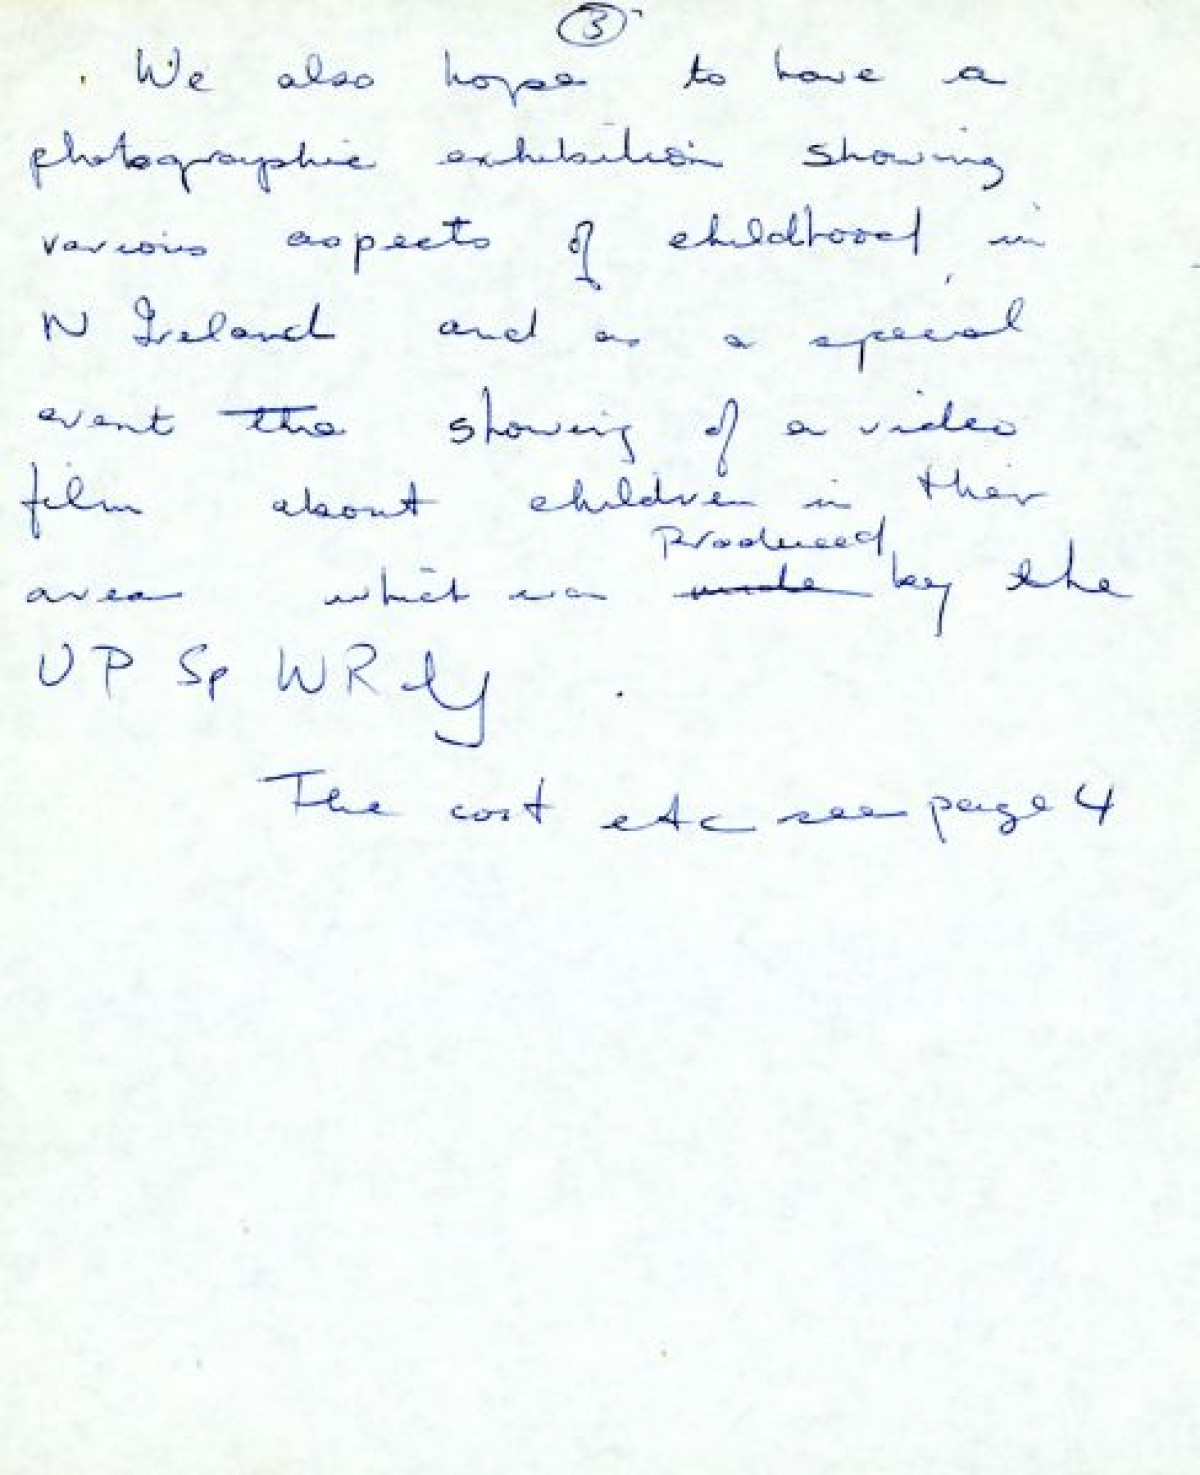 3
We also hope to have a
photographic exhibition showing
various aspects of childhood in
N Ireland and as a special
event the showing of a video
film about children in their
area which was made by the
Produced
UP Sp WR
The cost etc see page 4